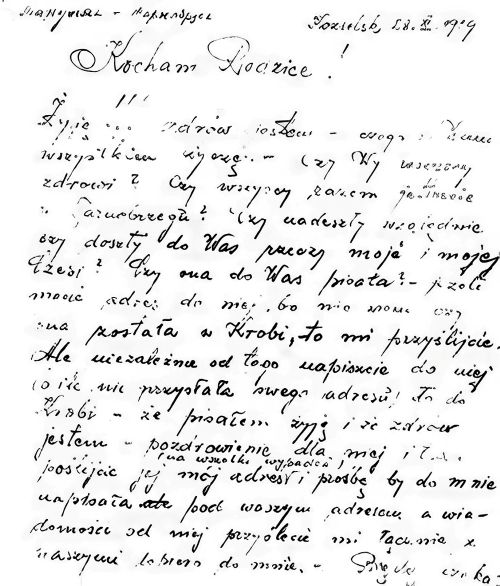 Kozielsk, 28. XI. 1939
Kochani Rodzice!
Żyję !!! zdrów jestem - czego i Wam
wszystkim życzę. - Czy Wy wszyscy
zdrowi? Czy wszyscy razem jesteście
w Tarnobrzegu? Czy nadeszły względnie
czy doszły do Was rzeczy moje i mojej
Czesi? Czy ona do Was pisała? - jeżeli
macie adres do niej, bo nie wiem czy
ona została w Krobi, to mi przyślijcie.
Ale niezależnie od tego napiszcie do niej
jeśli nie przysłała swego adresu, to do
Krobi - że pisałem żyję i że zdrów
jestem - pozdrowienie dla niej i
(na wszelki wypadek)
poślijcie jej mój adres i prośbę by do mnie
napisała pod waszym adresem a wia-
domości od niej przyślecie mi łącznie z
waszymi do mnie. -